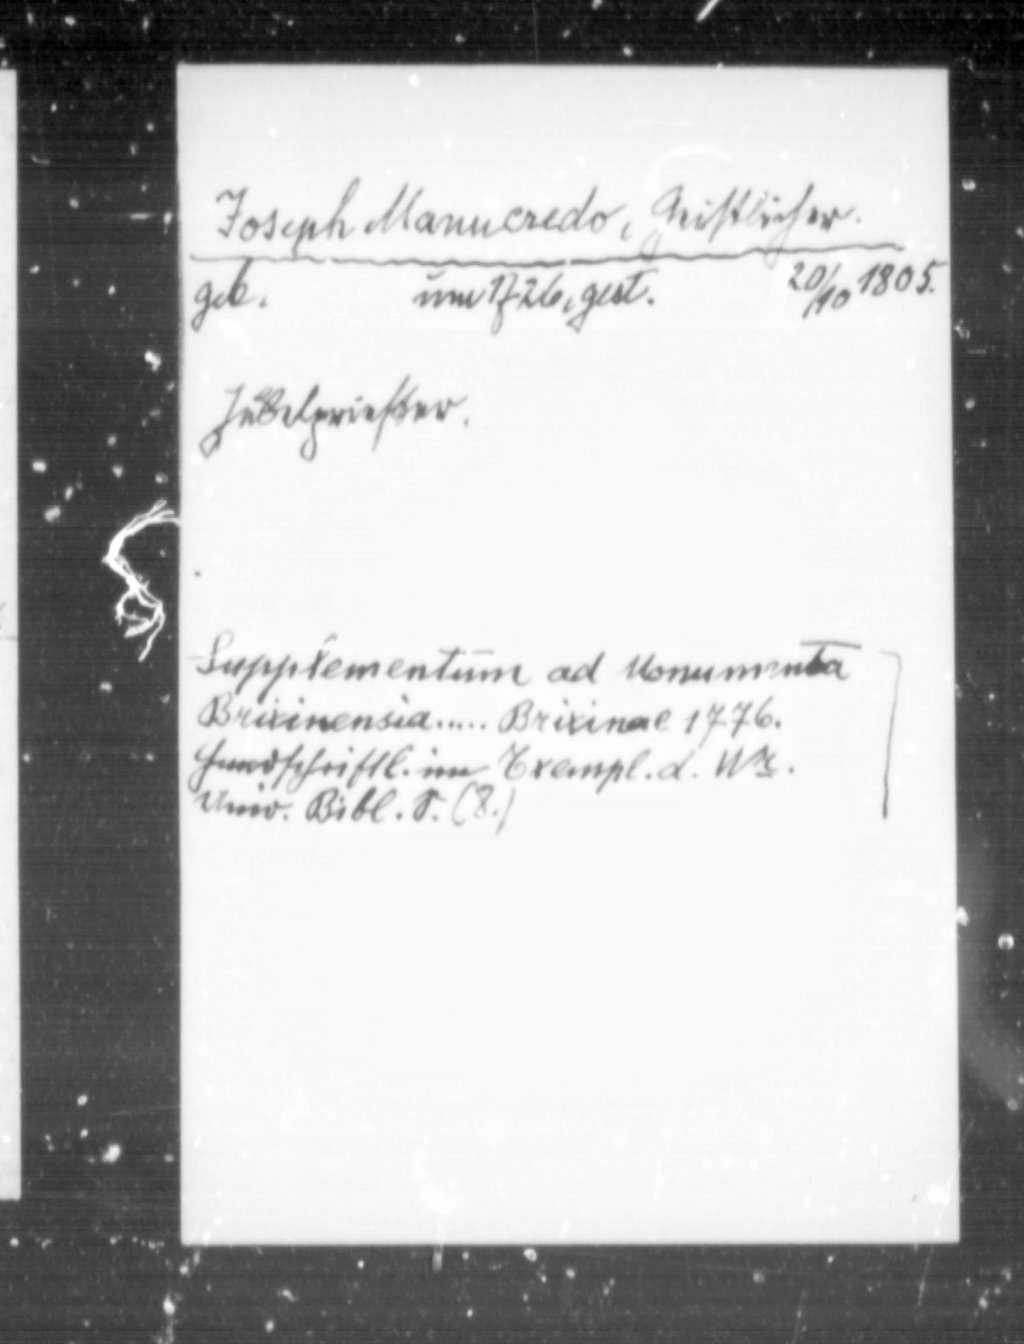 Joseph Manucredo, Geistlicher.
geb. um 1726, gest. 20/10 1805.
Jubelpriester.
Supplementum ad Monumenta
Brixinensia..... Brixinae 1776.
Handschriftl. im Exempl. d.
Univ. Bibl. (8.)